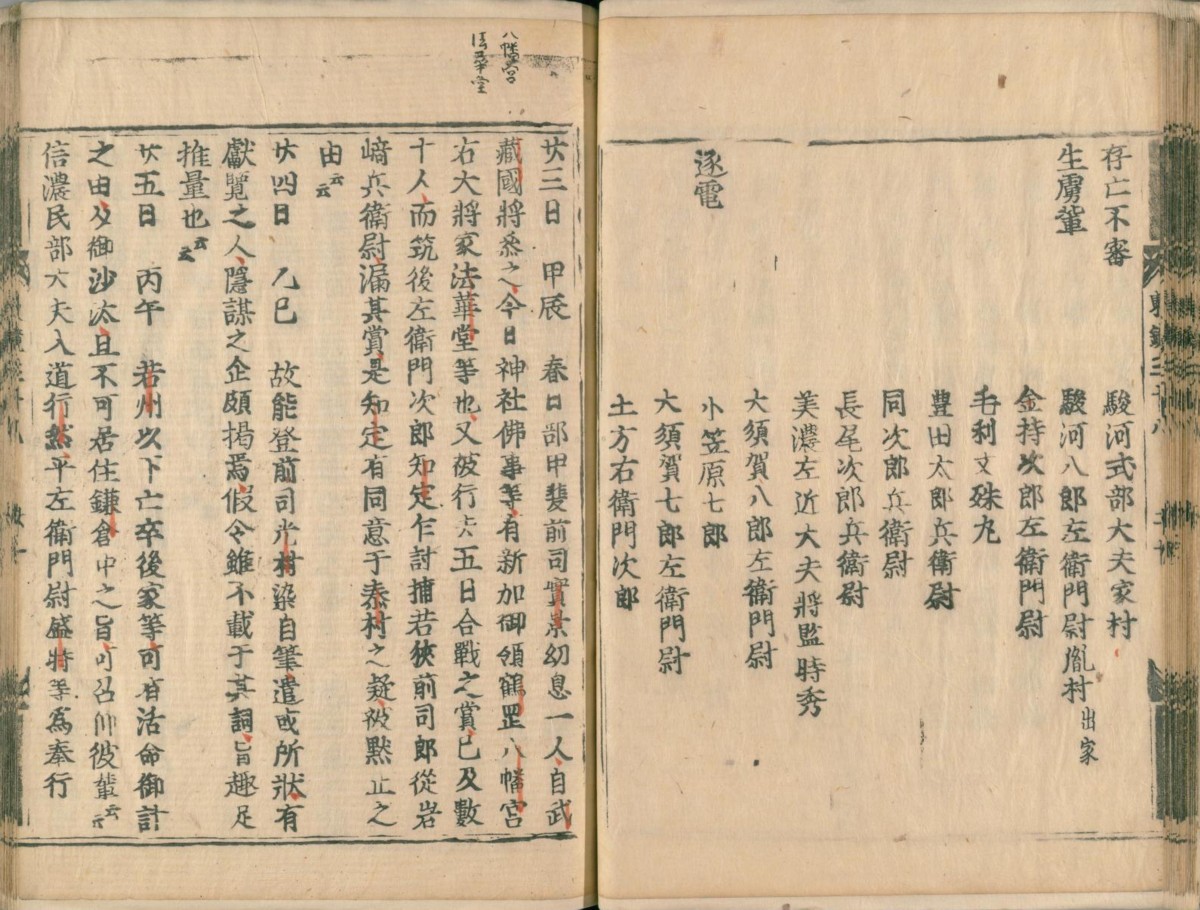 存亡不審
駿河式部大夫家村
生虜輩
駿河八郎左衛門尉胤村 出家
金持次郎左衛門尉
毛利文殊丸
豊田太郎兵衛尉
同次郎兵衛尉
長尾次郎兵衛尉
美濃左近大夫將監時秀
大須賀八郎左衛門尉
逐電
小笠原七郎
大須賀七郎左衛門尉
土方右衛門次郎
八幡宮
法華堂
廿三日 甲辰 春日部甲斐前司實景幼息一人自武
藏國將參之今日神社佛事等有新加御領鶴罡八幡宮
右大將家法華堂等也又被行去五日合戰之賞已及數
十人而筑後左衛門次郎知定乍討捕若狹前司郎從岩
﨑兵衛尉漏其賞是知定有同意于泰村之疑被默止之
由云云
廿四日 乙巳 故能登前司光村染自筆遣或所狀有
獻覽之人隱謀之企頗揭焉假令雖不載于其詞旨趣足
推量也云云
廿五日 丙午 若州以下亡卒後家等可有活命御計
之由及御沙汰且不可居住鎌倉中之旨可召仰彼輩云云
信濃民部大夫入道行然平左衛門尉盛時等爲奉行